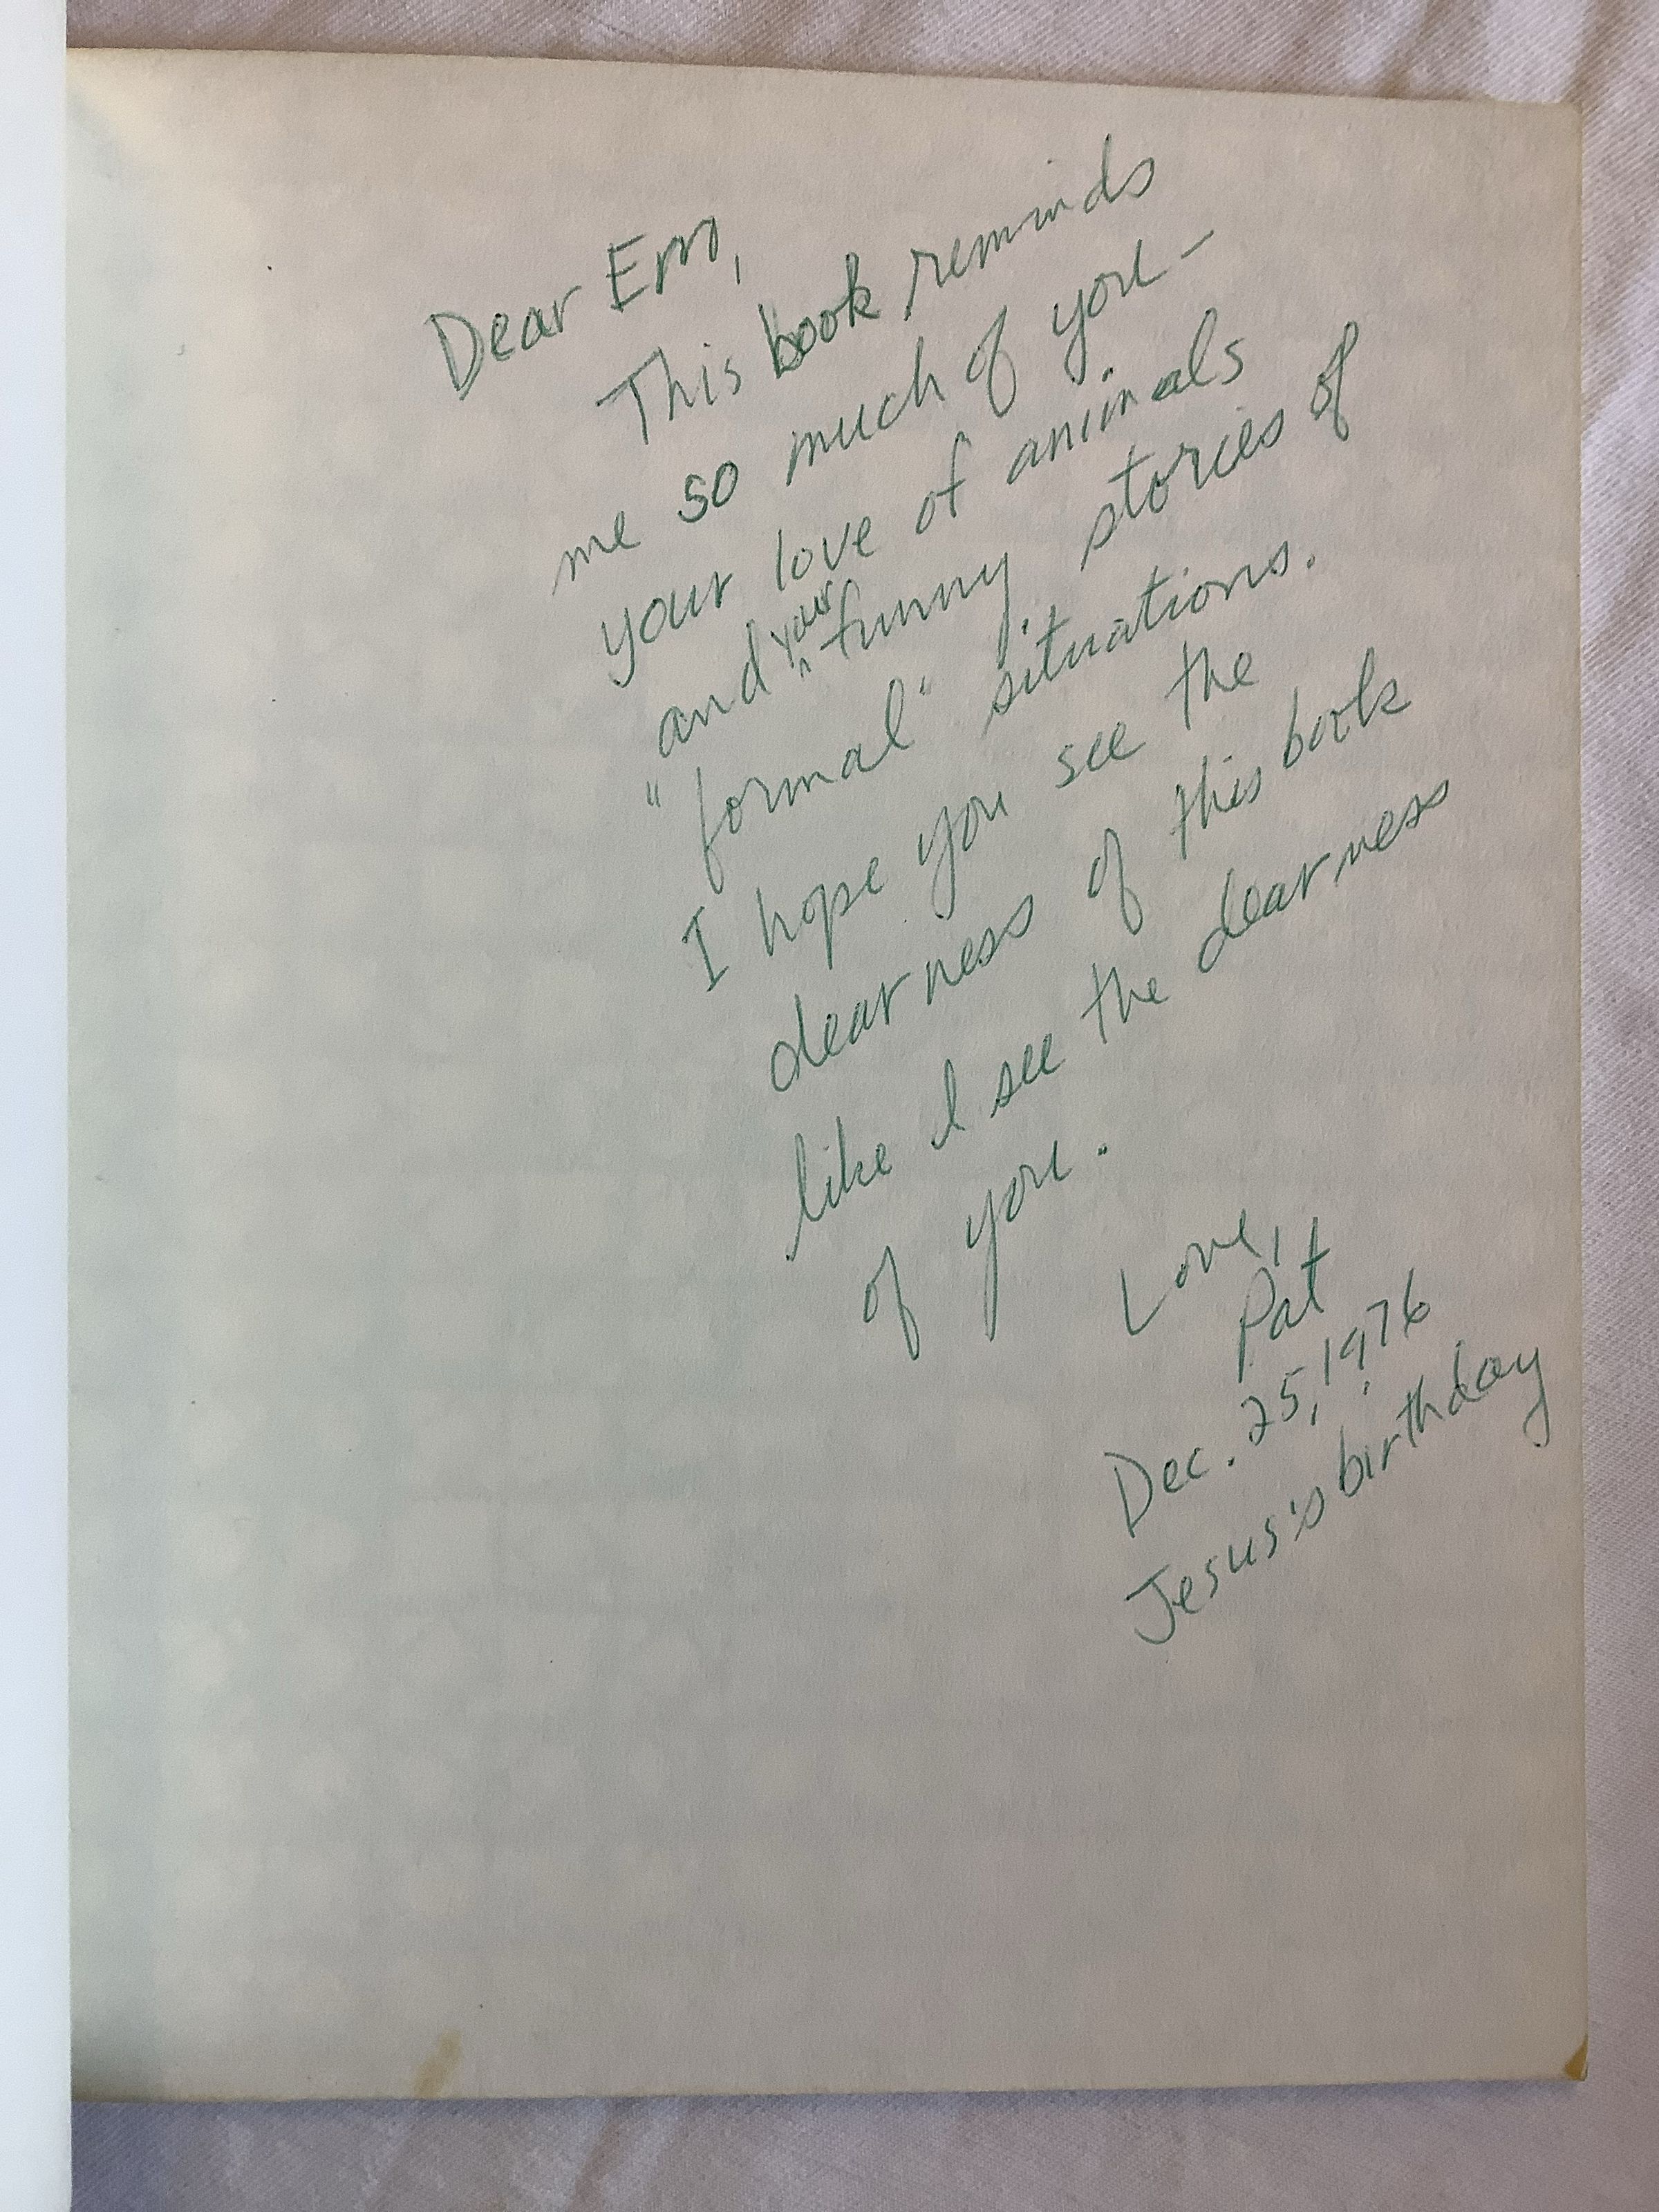 Dear Em,
This book reminds
me so much of you –
your love of animals
and your funny stories of
"formal" situations.
I hope you see the
dearness of this book
like I see the dearness
of you.
Love,
Pat
Dec. 25, 1976
Jesus's birthday